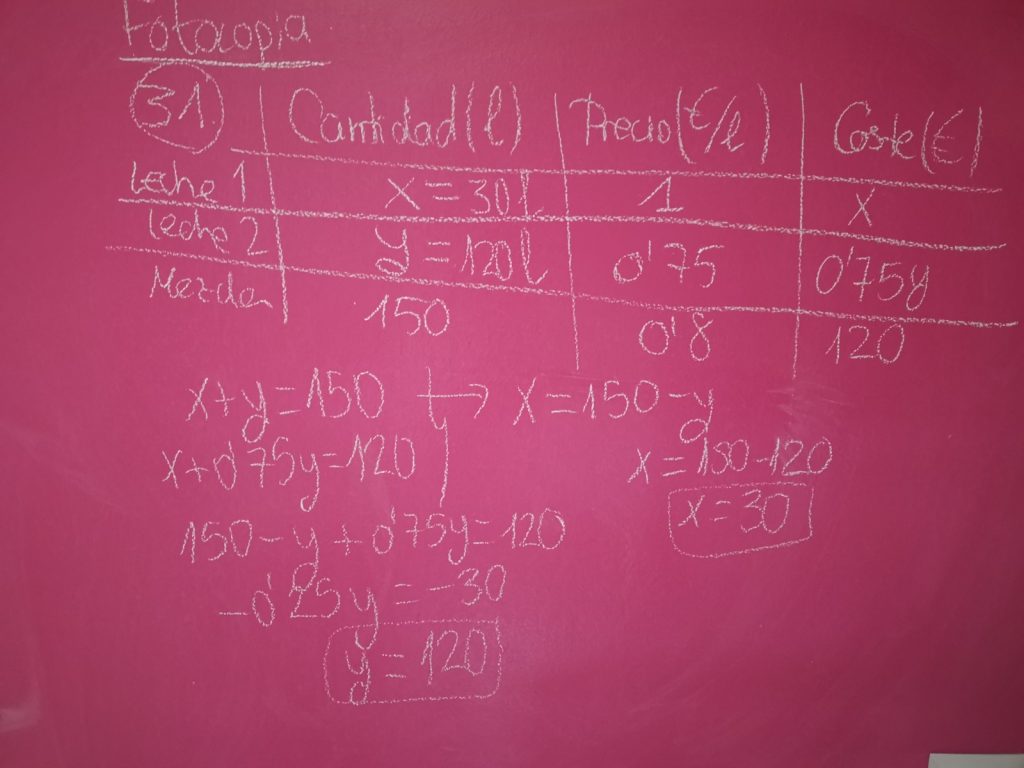 Fotocopia
31. Cantidad (l) Precio (€/l) Coste (€)
Leche 1 x = 30 l 1 x
Leche 2 y = 120 l 0'75 0'75y
Mezcla 150 0'8 120
x+y=150 → x=150-y
x+0'75y=120 x=150-120
x=30
150-y+0'75y=120
-0'25y=-30
y=120